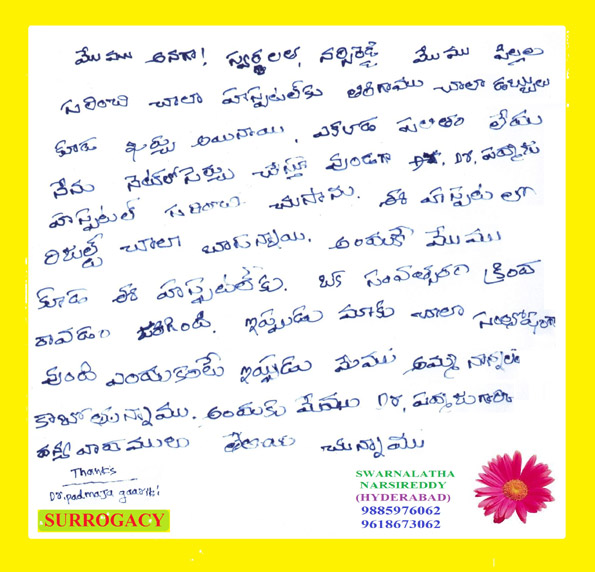 మేము అనగా! స్వర్ణలత, నర్సిరెడ్డి మేము పిల్లల
గురించి చాలా హాస్పటల్‌కు తిరిగాము చాలా డబ్బులు
కూడ ఖర్చు అయినాయి, ఎక్కడా ఫలితం లేదు
నేను నెట్‌లో సెర్చు చేస్తూ వుండగా Dr. పద్మజ
హాస్పటల్ గురించి చుసాను. ఈ హాస్పటల్ లో
రిజల్ట్ చాలా బాగున్నాయి. అందుకే మేము
కూడ ఈ హాస్పటల్‌కు. ఒక సంవత్సరం క్రింద
రావడం జరిగింది. ఇప్పుడు మాకు చాలా సంతోషంగా
వుంది ఎందుకంటే ఇప్పుడు మేము అమ్మ నాన్నలం
కాబోతున్నాము. అందుకు మేము Dr, పద్మజగారికి
తెలియ చున్నాము
Thanks
Dr. padmaja gaariki
SURROGACY
SWARNALATHA
NARSIREDDY
(HYDERABAD)
9885976062
9618673062